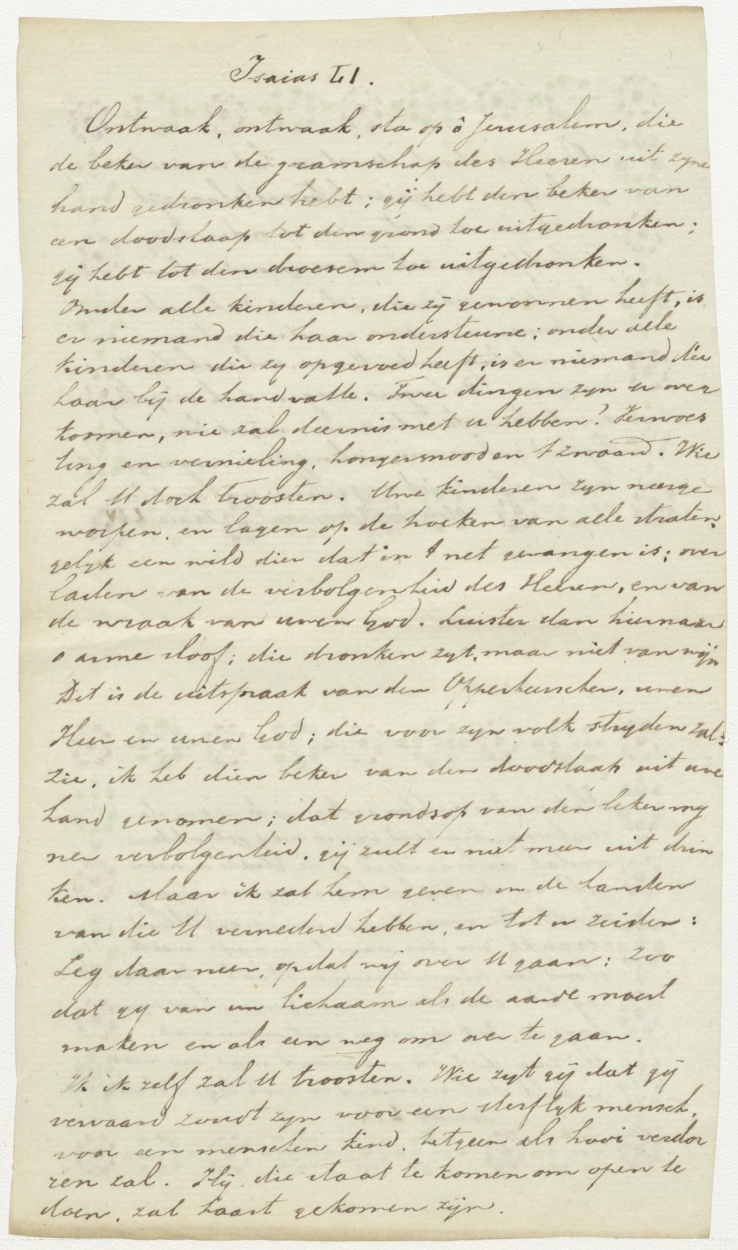 Isaias 51.
Ontwaak, ontwaak, sta op ô Jerusalem, die
de beker van de gramschap des Heeren uit zyne
hand gedronken hebt; gij hebt den beker van
een doodslaap tot den grond toe uitgedronken;
gij hebt tot den droesem toe uitgedronken.
Onder alle kinderen, die zij gewonnen heeft, is
er niemand die haar ondersteune; onder alle
kinderen die zy opgevoed heeft, is er niemand die
haar bij de hand vatte. Twee dingen zyn u over
komen, wie zal deernis met u hebben? Verwoes
ting en vernieling, hongersnood en 't zwaard. Wie
zal U doch troosten. Uwe kinderen zyn neerge
worpen, en lagen op de hoeken van alle straten,
gelyk een wild dier dat in 't net gevangen is; over
laden van de verbolgenheid des Heeren, en van
de wraak van uwen God. Luister dan hiernaar
o arme sloof; die dronken zyt, maar niet van wijn
Dit is de uitspraak van den Opperheerscher, uwen
Heer en uwen God; die voor zyn volk stryden zal:
zie, ik heb dien beker van den doodslaap uit uwe
hand genomen; dat grondsop van den beker my
ner verbolgenheid, gij zult er niet meer uit drin
ken. Maar ik zal hem geven in de handen
van die U vernederd hebben, en tot u zeiden:
Leg daar neer, opdat wij over U gaan: Zoo
dat gy van uw lichaam als de aarde moest
maken en als een weg om over te gaan.
Ik ik zelf zal U troosten. Wie zyt gij dat gij
vervaard zoudt zyn voor een sterflyk mensch,
voor een menschen kind, hetgeen als hooi verdor
ren zal. Hij die staat te komen om open te
doen, zal haast gekomen zijn.